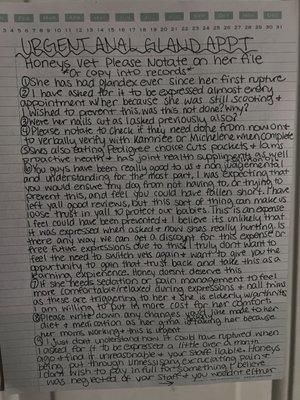 URGENT ANAL GLAND APPT
Honeys Vet Please Notate on her file
*Or copy into records*
① She has had glandex ever since her first rupture
② I have asked for it to be expressed almost every
appointment w/her because she was still scooting +
I wished to prevent this, was this not done? Why?
③ Were her nails cut as I asked previously also?
④ Please notate to check if they need done from now on +
to verbally verify with Kamrie or Michelene when complete
⑤ Shes also eating Pedigree choice cuts packets + Iams
proactive health + has joint health supplements as well
⑥ You guys have been really good to us + non judgemental
and understanding for the most part, I was expecting that
you would ensure my dog from not having to, or trying to
prevent this, and feel you could have fallen short. I have
left yall good reviews, but this sort of thing can make us
loose trust in yall to protect our babies. This is an expense
I feel could have been prevented + I believe its unlikely that
it was expressed when asked + now shes really hurting. Is
there any way we can get a discount for this expense or
free future expressions due to this. I truly dont want to
feel the need to switch vets again + want to give you the
oppurtunity to earn that trust back and take this as a
learning experience. Honey doesnt deserve this
⑦ If she needs sedation or pain management to feel
more comfortable/relaxed during expressions + nail trims
as these are triggering to her + she is elderly w/arthritis
I am willing to put in more cost for her comfort
⑧ Please write down any changes youd like made to her
diet + medication as her gma is taking her because
her moms working + this is urgent
⑨ I just dont understand how it could have ruptured when
I asked for it to be expressed a little over a month
ago + find it unreasonable + your staff liable. Honeys
being put through unnessisary excruciating pain + I
dont wish to pay in full for something I believe
was neglected of your staff + you wouldnt either